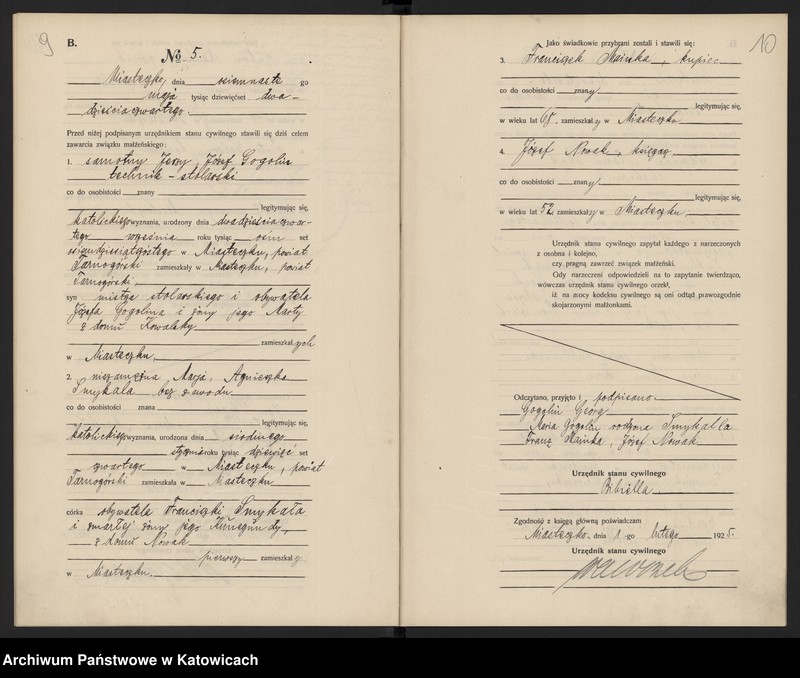 9
B.
No 5.
Miasteczko, dnia osiemnaste go
maja tysiąc dziewięćset dwa-
dzieścia czwartego.
Przed niżej podpisanym urzędnikiem stanu cywilnego stawili się dziś celem
zawarcia związku małżeńskiego:
1. samotny Jerzy, Józef Gogolin
technik - stolarski
co do osobistości znany
legitymując się,
katolickiego wyznania, urodzony dnia dwadzieścia czwar-
tego września roku tysiąc ośm set
w Miasteczku, powiat
Tarnogórski zamieszkały w Miasteczku, powiat
Tarnogórski
syn mistrza stolarskiego i obywatela
Józefa Gogolina i żony jego Marty
z domu Kowalsky
zamieszkałych
w Miasteczku.
2. niezamężna Marja, Agnieszka
Smykala bez zawodu
co do osobistości znana
legitymując się,
katolickiego wyznania, urodzona dnia siódmego
stycznia roku tysiąc dziewięć set
czwartego w Miasteczku, powiat
Tarnogórski zamieszkała w Miasteczku
córka obywatela Franciszki Smykała
i zmarłej żony jego Kunegundy,
z domu Nowak
pierwszy zamieszkały
w Miasteczku.
10
Jako świadkowie przybrani zostali i stawili się:
3. Franciszek Mainka, kupiec
co do osobistości znany
legitymując się,
w wieku lat 68. zamieszkały w Miasteczku
4. Józef Nowak, księgarz
co do osobistości znany
legitymując się,
w wieku lat 52 zamieszkały w Miasteczku
Urzędnik stanu cywilnego zapytał każdego z narzeczonych
z osobna i kolejno,
czy pragną zawrzeć związek małżeński.
Gdy narzeczeni odpowiedzieli na to zapytanie twierdząco,
wówczas urzędnik stanu cywilnego orzekł,
iż na mocy kodeksu cywilnego są oni odtąd prawozgodnie
skojarzonymi małżonkami.
Odczytano, przyjęto i podpisano
Gogolin Georg
Maria Gogolin rodzona Smykalla
Franz Mainka, Józef Nowak
Urzędnik stanu cywilnego
Bibiella
Zgodność z księgą główną poświadczam
Miasteczko, dnia 1-go lutego 1925.
Urzędnik stanu cywilnego
Archiwum Państwowe w Katowicach